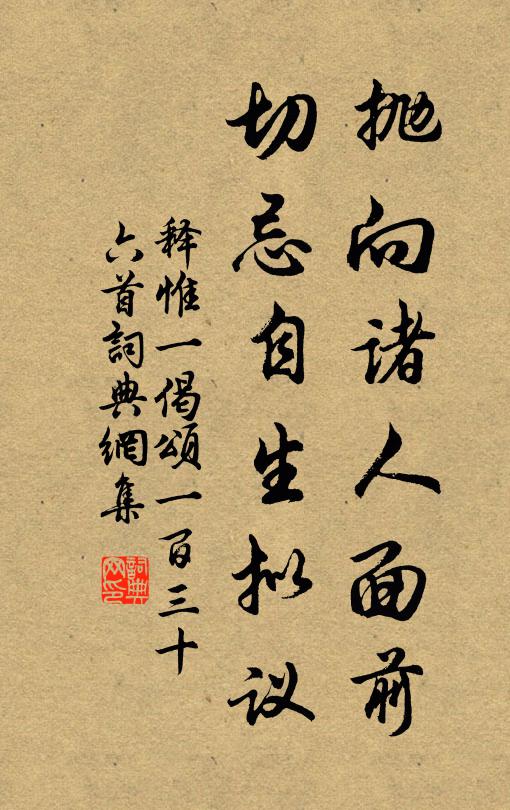 抛向诸人面前
切忌自生拟议
释惟一偈颂一百三十
六首詞典網集
詞典
网印